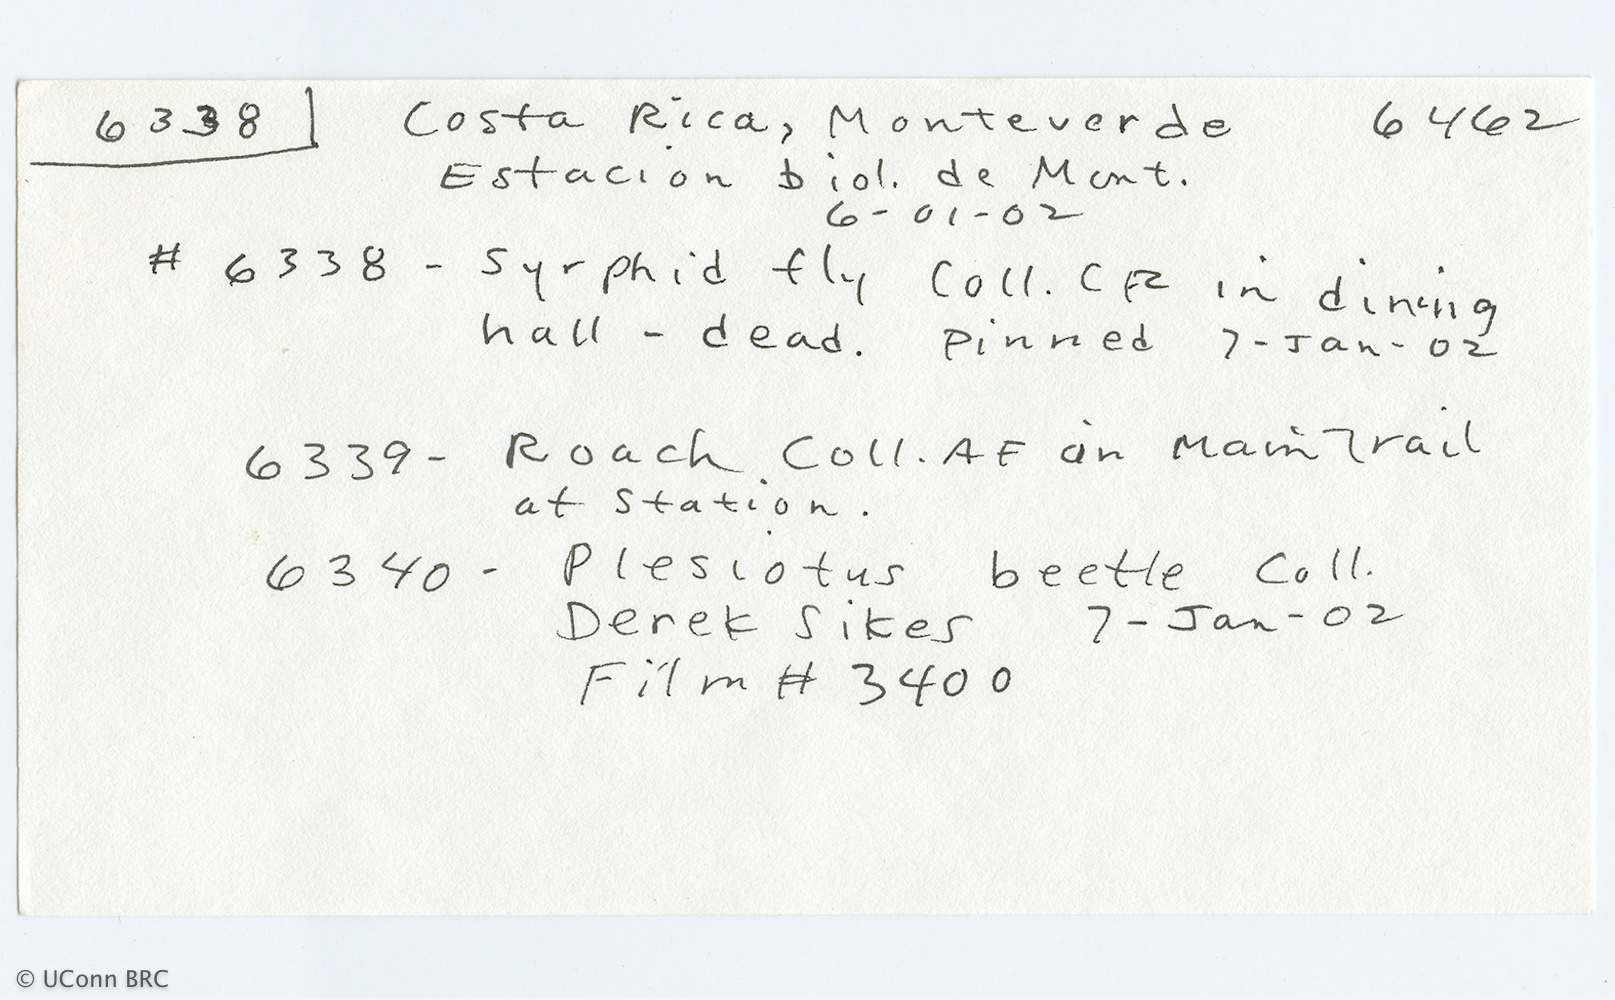 6338 Costa Rica, Monteverde 6462
Estacion biol. de Mont.
6-01-02
# 6338 - Syrphid fly Coll. CR in dining
hall - dead. Pinned 7-Jan-02
6339 - Roach Coll. AF on Main Trail
at Station.
6340 - Plesiotus beetle Coll.
Derek Sikes 7-Jan-02
Film # 3400
© UConn BRC